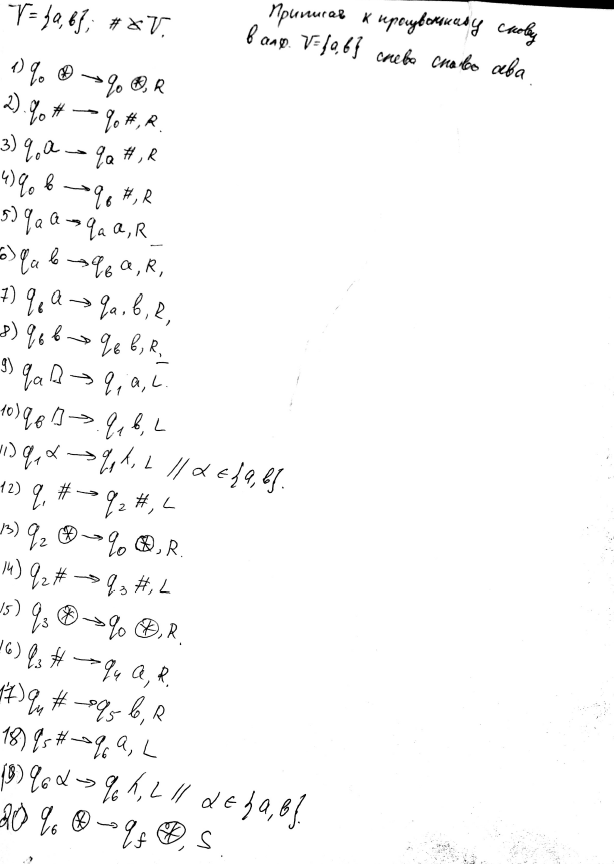 V={a,в}; # ∉ V.
Приписать к произвольному слову
в алф. V={a,в} слево слово ава.
1) q₀ ⊛ → q₀ ⊛, R
2) q₀ # → q₀ #, R.
3) q₀ a → qₐ #, R
4) q₀ в → q_в #, R
5) qₐ a → qₐ a, R
6) qₐ в → q_в a, R,
7) q_в a → qₐ, в, R,
8) q_в в → q_в в, R.
9) qₐ Λ → q₁ a, L.
10) q_в Λ → q₁ в, L
11) q₁ α → q₁ λ, L // α ∈ {a, в}.
12) q₁ # → q₂ #, L
13) q₂ ⊛ → q₀ ⊛, R.
14) q₂ # → q₃ #, L
15) q₃ ⊛ → q₀ ⊛, R.
16) q₃ # → q₄ a, R.
17) q₄ # → q₅ в, R
18) q₅ # → q₆ a, L
19) q₆ α → q₆ λ, L // α ∈ {a, в}.
20) q₆ ⊛ → q_f ⊛, S